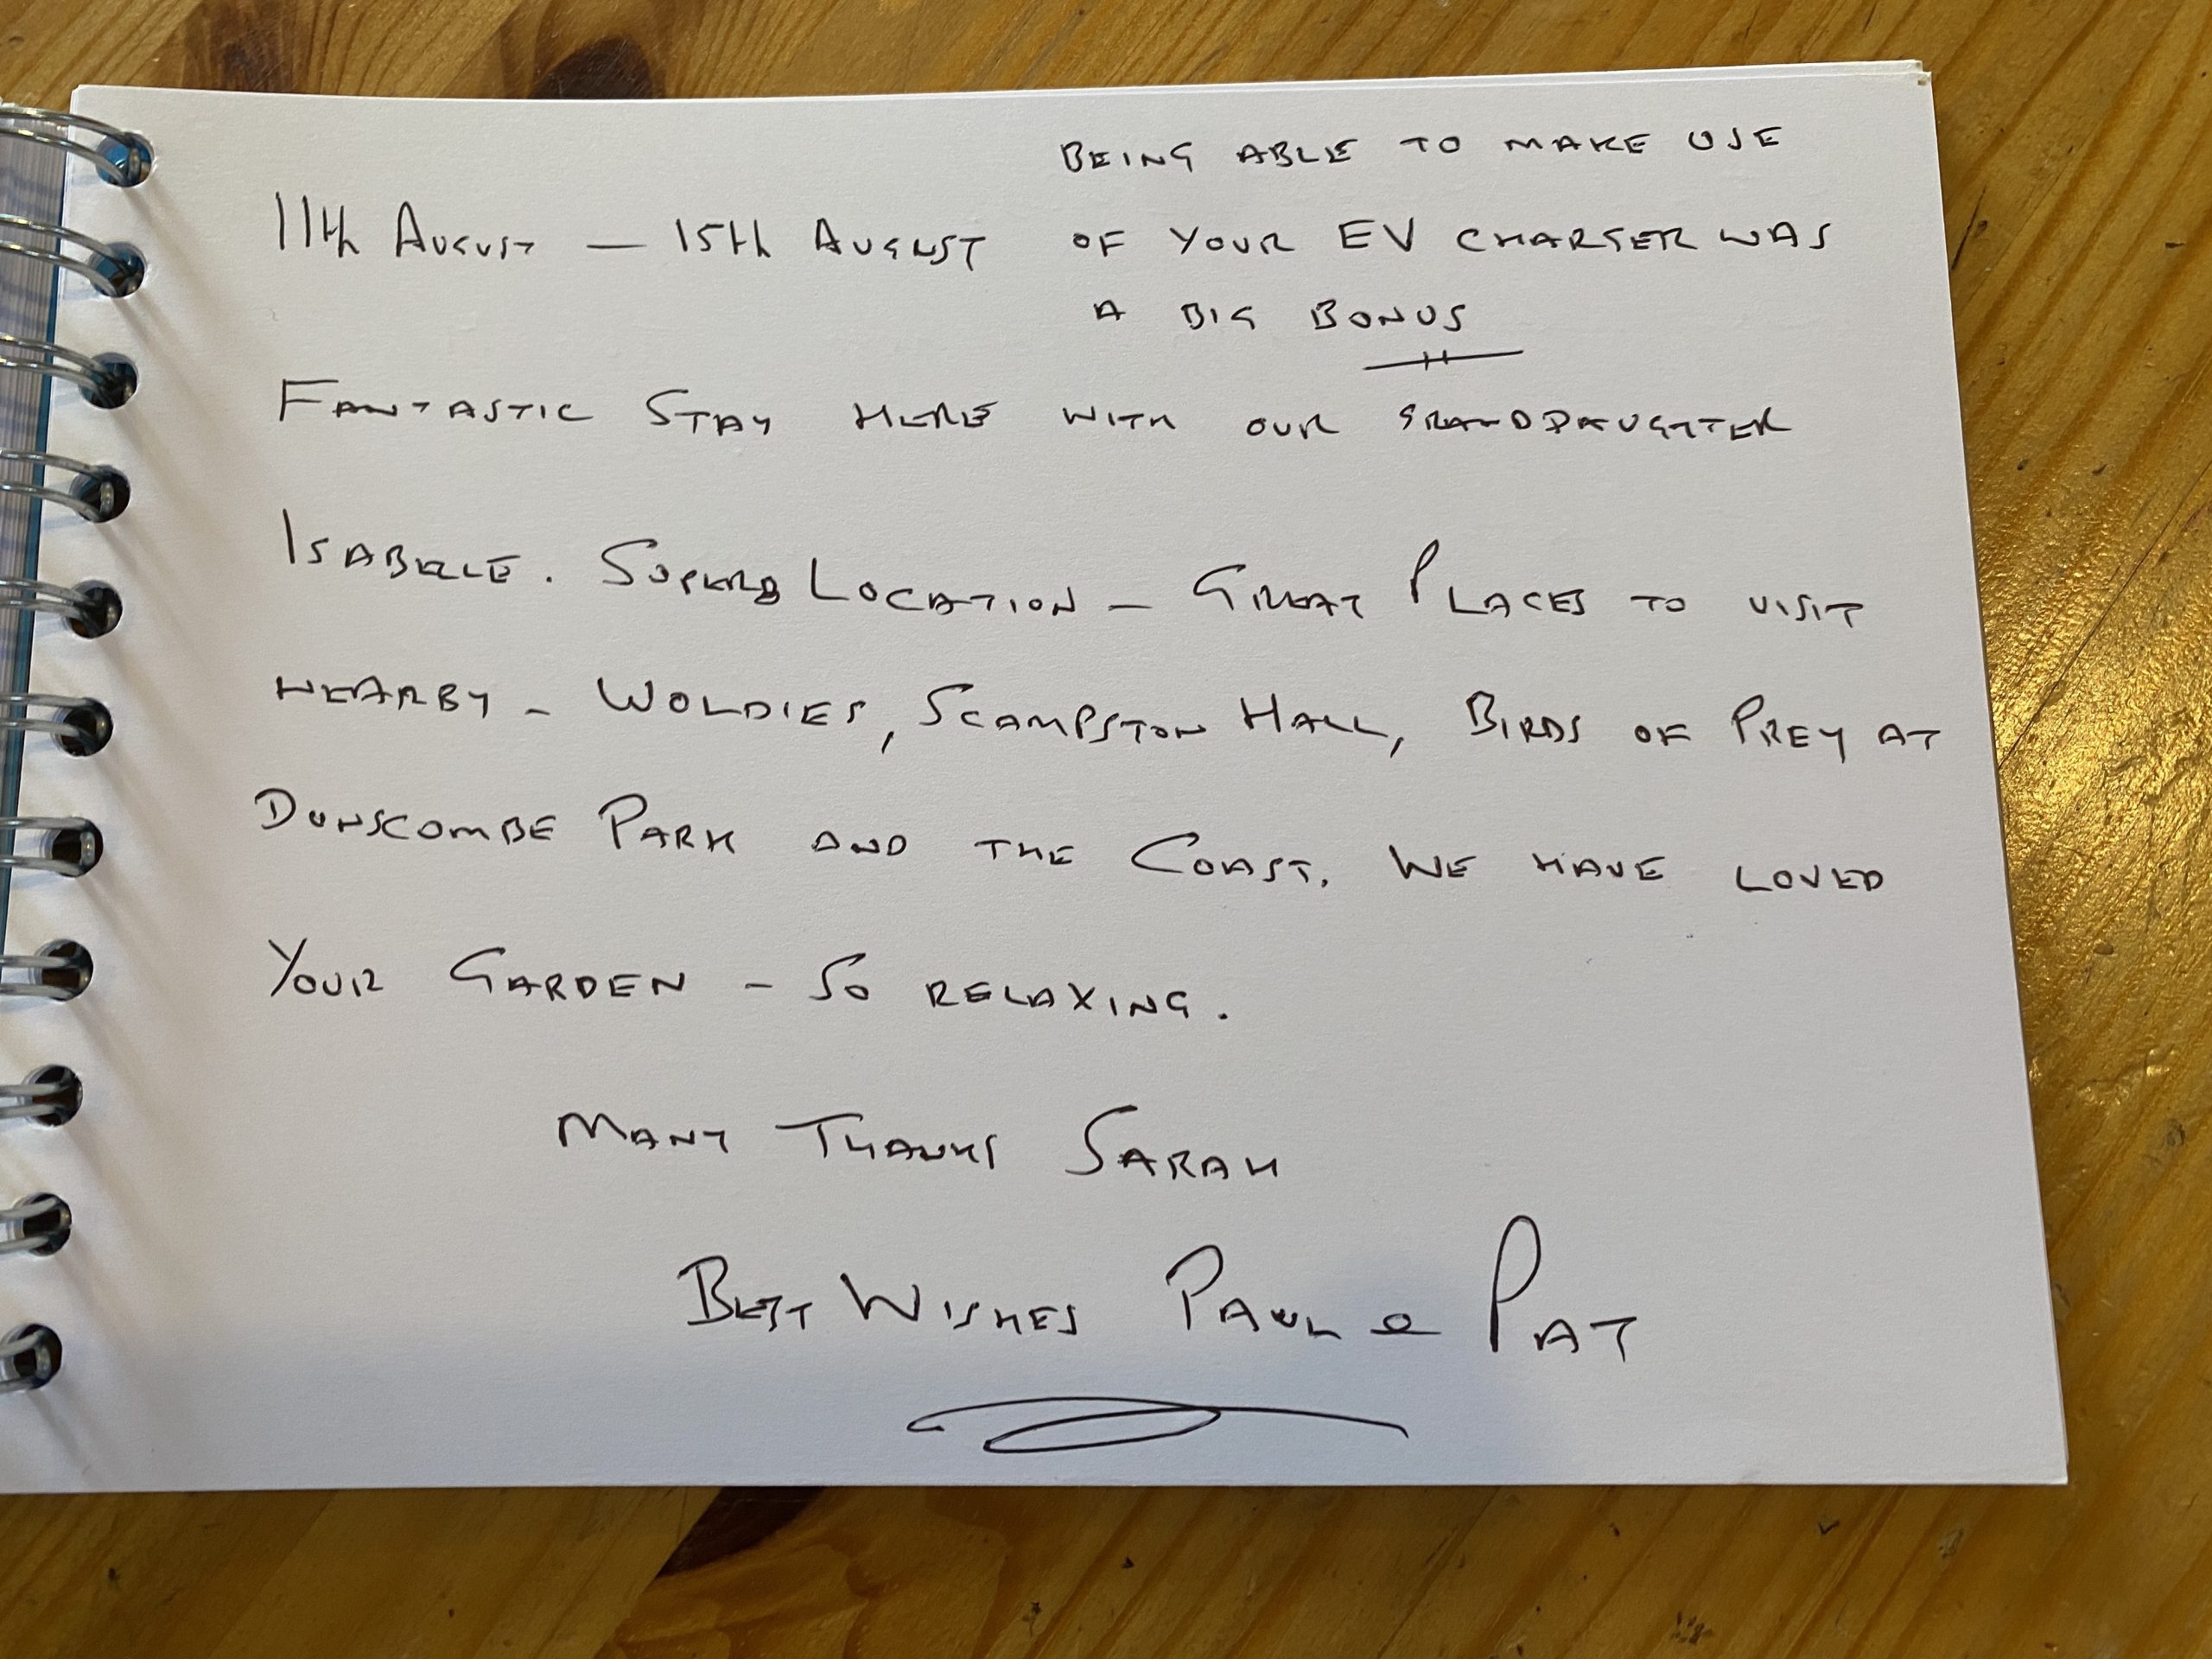 BEING ABLE TO MAKE USE
11th AUGUST — 15th AUGUST OF YOUR EV CHARGER WAS
A BIG BONUS
FANTASTIC STAY HERE WITH OUR GRANDDAUGHTER
ISABELLE. SUPERB LOCATION – GREAT PLACES TO VISIT
NEARBY – WOLDIES, SCAMPSTON HALL, BIRDS OF PREY AT
DUNSCOMBE PARK AND THE COAST. WE HAVE LOVED
YOUR GARDEN – SO RELAXING.
MANY THANKS SARAH
BEST WISHES PAUL & PAT